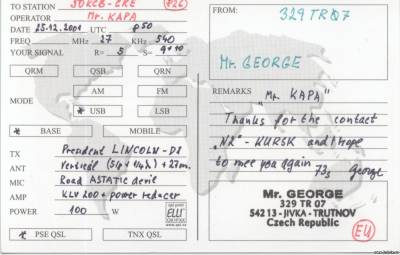 TO STATION 50KCB-CRE (P26)
OPERATOR Mr. KAPA
DATE 25.12.2001 UTC 850
FREQ MHz 27 KHz 540
YOUR SIGNAL R= 5 S= 9+10
QRM QSB QRN
MODE
AM FM
* USB LSB
* BASE MOBILE
TX President LINCOLN-DX
ANT Vertical (5/4+1/4λ)+27m.
MIC Road ASTATIC devil
AMP KLV 200 + power reducer
POWER 100 W
* PSE QSL TNX QSL
FROM: 329 TR 07
Mr. GEORGE
REMARKS "Mr. KAPA"
Thanks for the contact
"N2" - KURSK and I hope
to meet you again
73s George
Mr. GEORGE
329 TR 07
542 13 -JIVKA - TRUTNOV
Czech Republic
EU